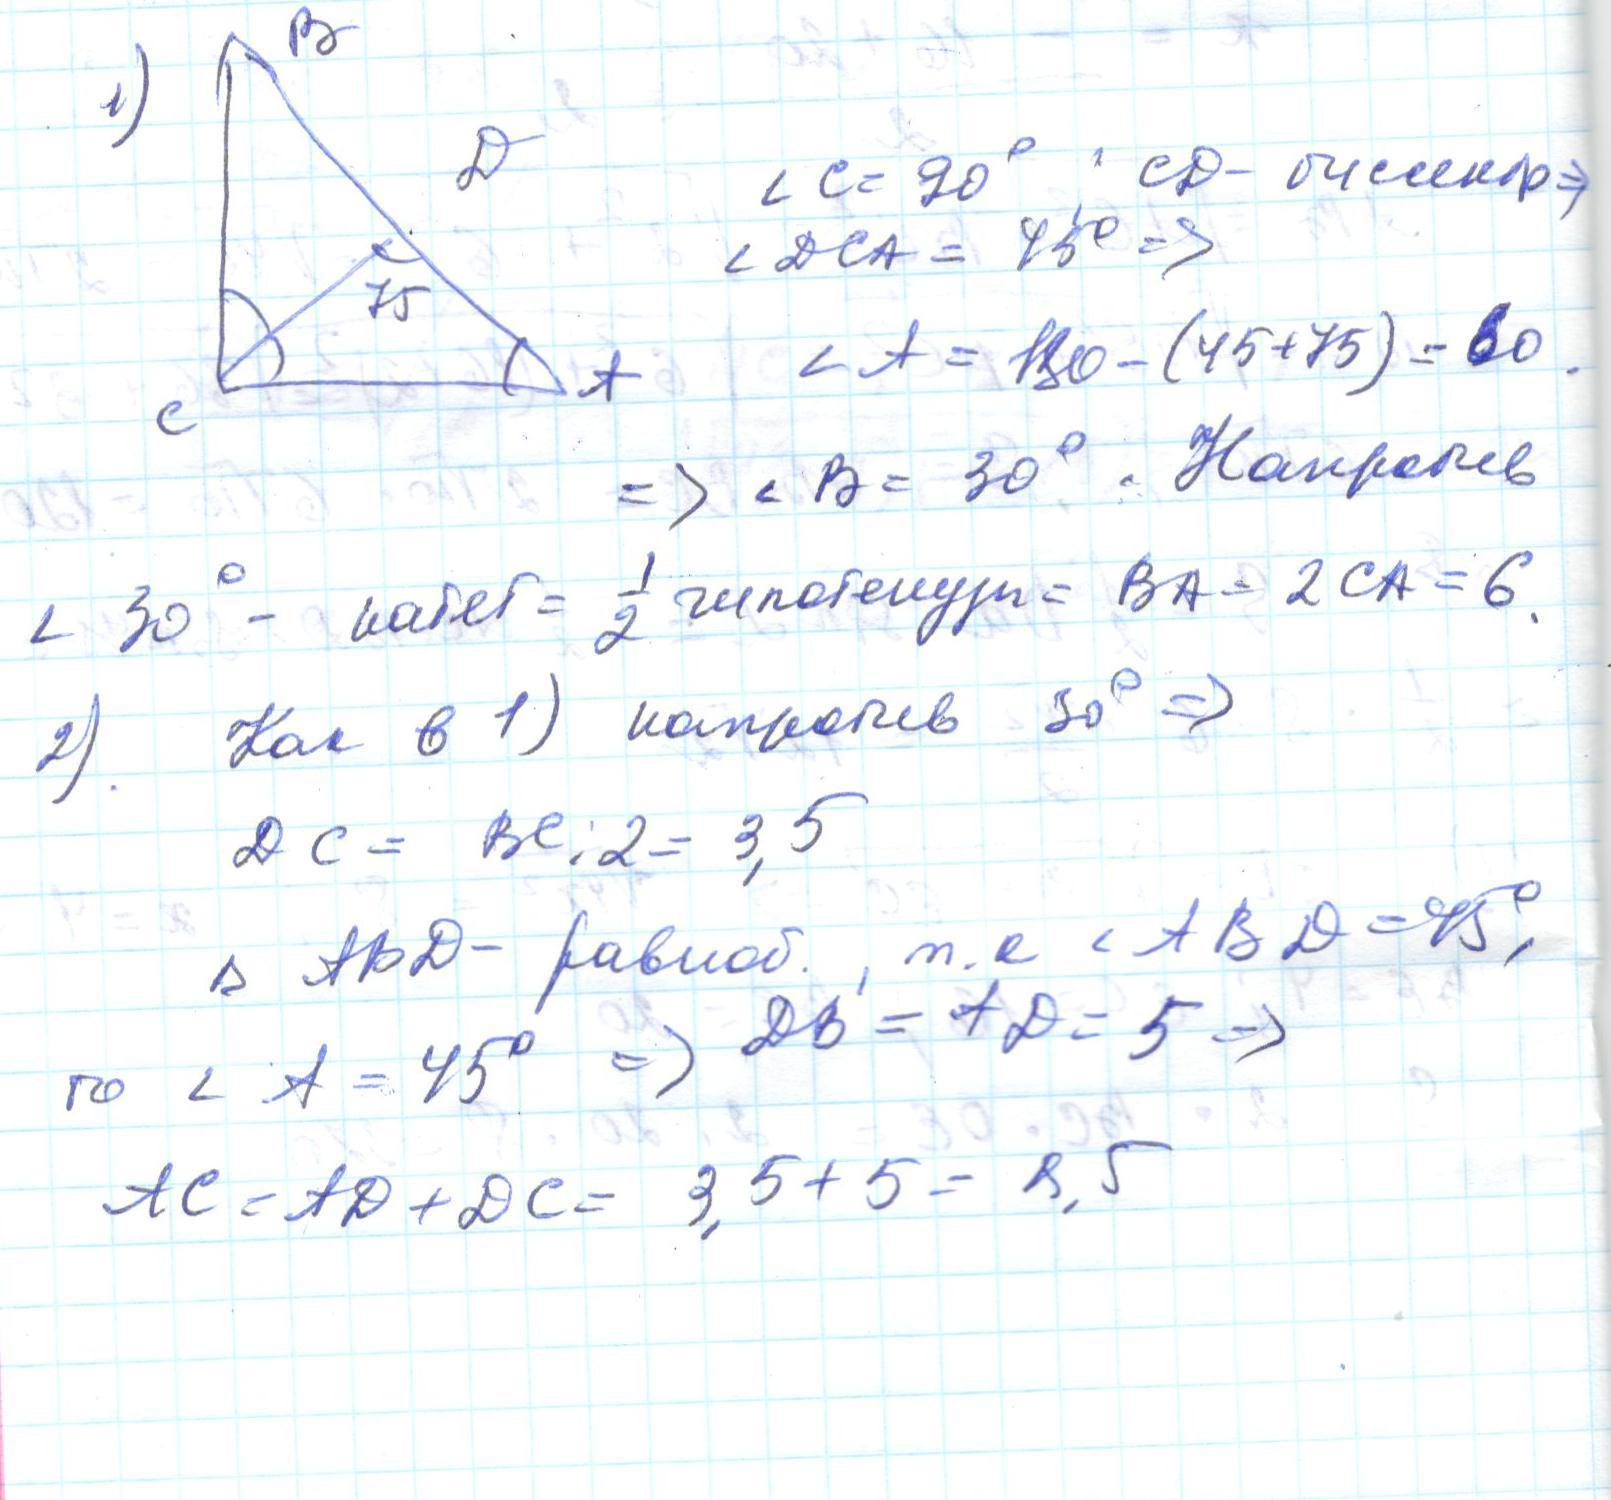 1)
B
D
75
C
A
∠C = 90° . CD - биссектр ⇒
∠DCA = 45° ⇒
∠A = 180 - (45+75) = 60.
⇒ ∠B = 30° . Напротив
∠ 30° - катет = 1/2 гипотенузы = BA = 2CA = 6.
2). Как в 1) напротив 30° ⇒
DC = BC:2 = 3,5
Δ ABD - равноб., т.к ∠ABD = 45°,
то ∠A = 45° ⇒ DB = AD = 5 ⇒
AC = AD + DC = 3,5 + 5 = 8,5